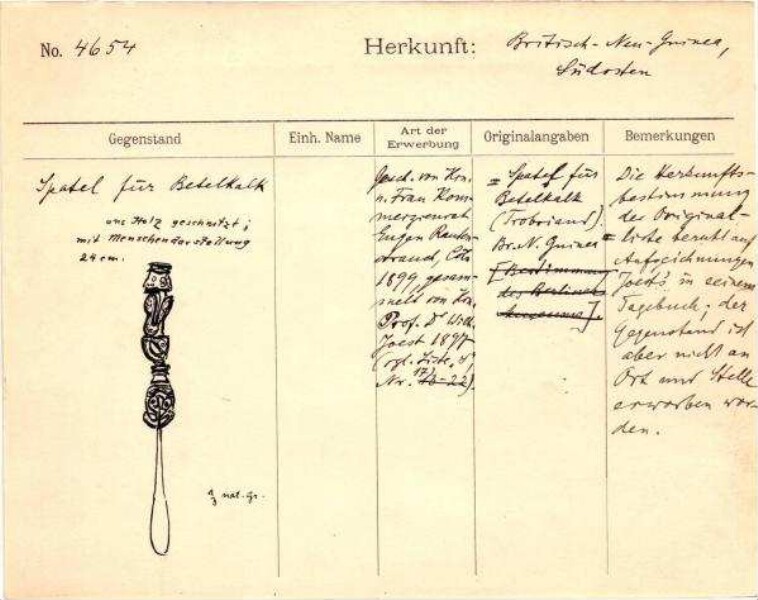 No. 4654
Herkunft: Britisch-Neu-Guinea,
Südosten
Gegenstand
Einh. Name
Art der
Erwerbung
Originalangaben
Bemerkungen
Spatel für Betelkalk
aus Holz geschnitzt;
mit Menschendarstellung
24 cm.
1/3 nat. Gr.
Gesch. von Hrn.
u. Frau Kom-
merzienrat
Eugen Rauten-
strauch, Cöln
1899, gesam-
melt von Hrn.
Prof. Dr Wilh.
Joest 1897
(vgl. Liste
Nr. 17
= Spatel für
Betelkalk
(Trobriand).
Br. N. Guinea =
[Bestimmung
des Berliner
Museums].
Die Herkunfts-
bestimmung
der Original-
liste beruht auf
Aufzeichnungen
Joest's in seinem
Tagebuch; der
Gegenstand ist
aber nicht an
Ort und Stelle
erworben wor-
den.